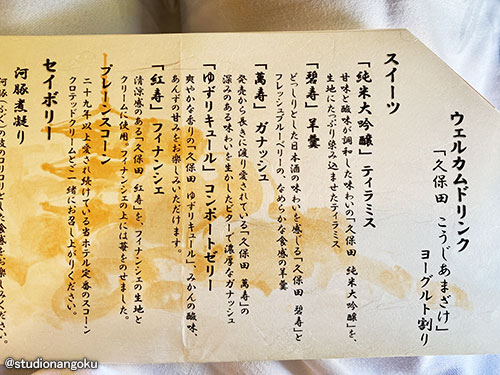 ウェルカムドリンク
「久保田 こうじあまざけ」
ヨーグルト割り
スイーツ
「純米大吟醸」ティラミス
甘味と酸味が調和した味わいの「久保田 純米大吟醸」を、
生地にたっぷり染み込ませたティラミス
「碧寿」羊羹
どっしりとした日本酒の味わいを感じる「久保田 碧寿」と
フレッシュブルーベリーの、なめらかな食感の羊羹
「萬寿」ガナッシュ
発売から長きに渡り愛されている「久保田 萬寿」の
深みのある味わいを生かしたビターで濃厚なガナッシュ
「ゆずリキュール」コンポートゼリー
爽やかな香りの「久保田 ゆずリキュール」、みかんの酸味、
あんずの甘みをお楽しみいただけます。
「紅寿」フィナンシェ
清涼感のある「久保田 紅寿」を、フィナンシェの生地と
クリームに使用。フィナンシェの上には苺をのせました。
プレーンスコーン
二十九年以上愛され続けている当ホテル定番のスコーン
クロテッドクリームと一緒にお召し上がりください。
セイボリー
河豚煮凝り
河豚(ふぐ)の皮のコリコリとした食感をお楽しみください。
@studionangoku